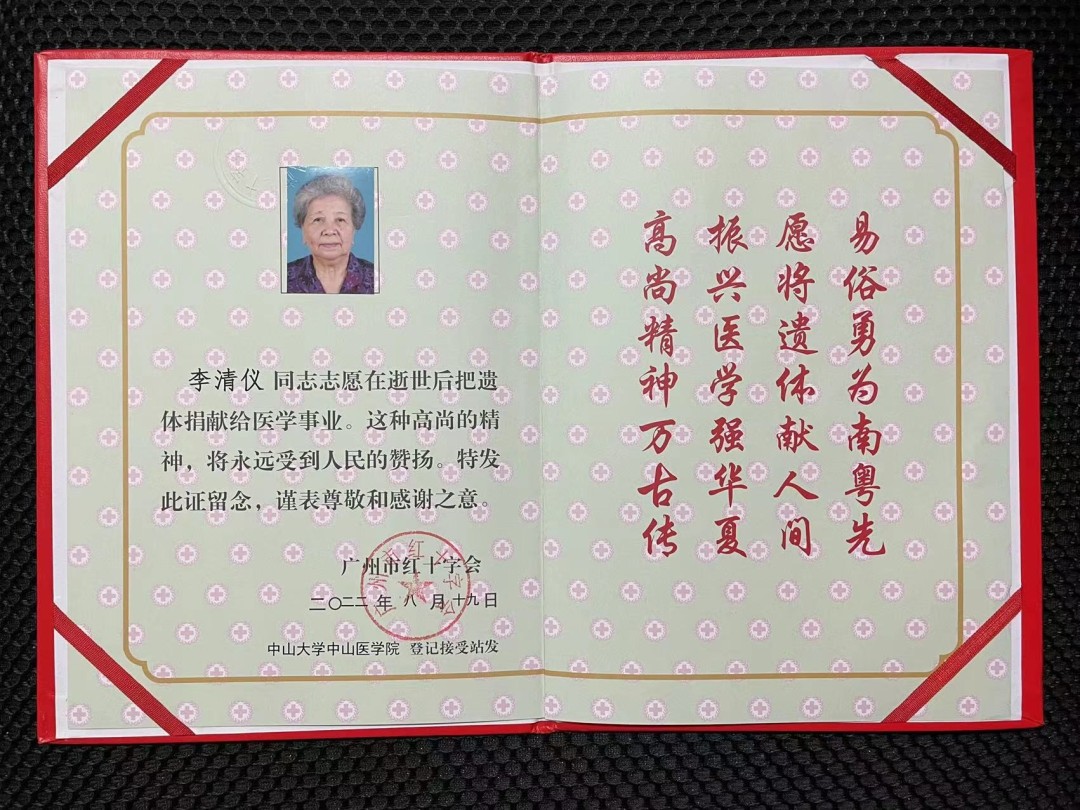 李清仪 同志志愿在逝世后把遗
体捐献给医学事业。这种高尚的精
神，将永远受到人民的赞扬。特发
此证留念，谨表尊敬和感谢之意。
广州市红十字会
二〇二二年 八 月十九日
中山大学中山医学院 登记接受站发
易俗勇为南粤先
愿将遗体献人间
振兴医学强华夏
高尚精神万古传